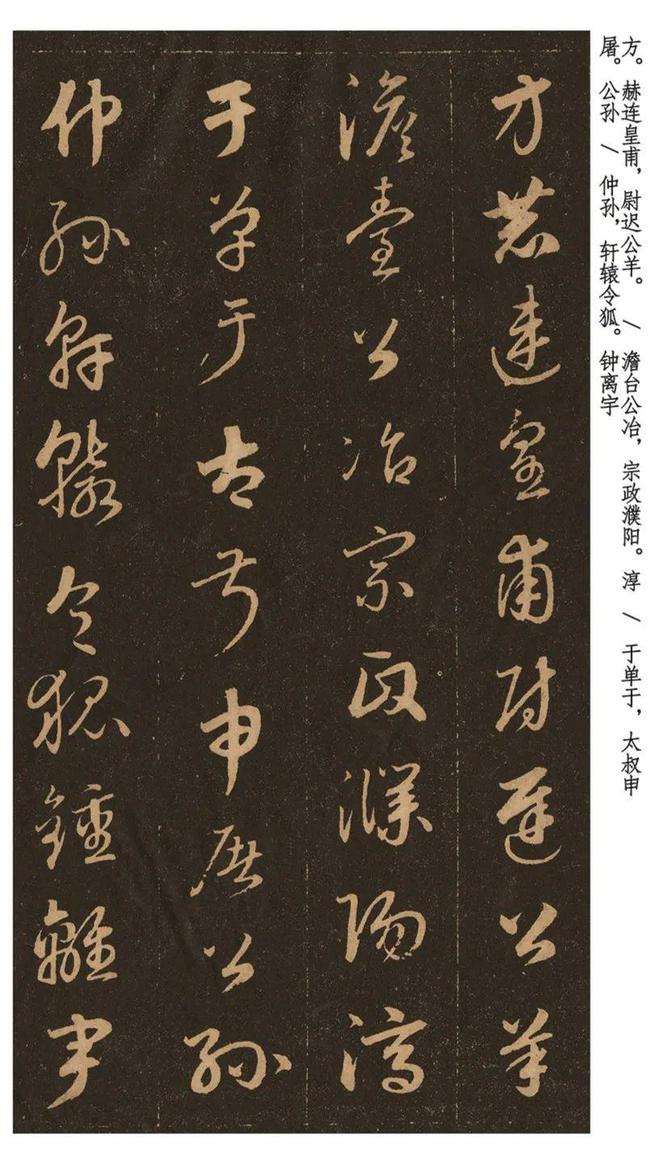 方。赫连皇甫，尉迟公羊。/ 澹台公冶，宗政濮阳。淳 / 于单于，太叔申
屠。公孙 / 仲孙，轩辕令狐。钟离宇
方赫連皇甫尉遲公羊
澹臺公冶宗政濮陽淳
于單于太叔申屠公孫
仲孫軒轅令狐鍾離宇